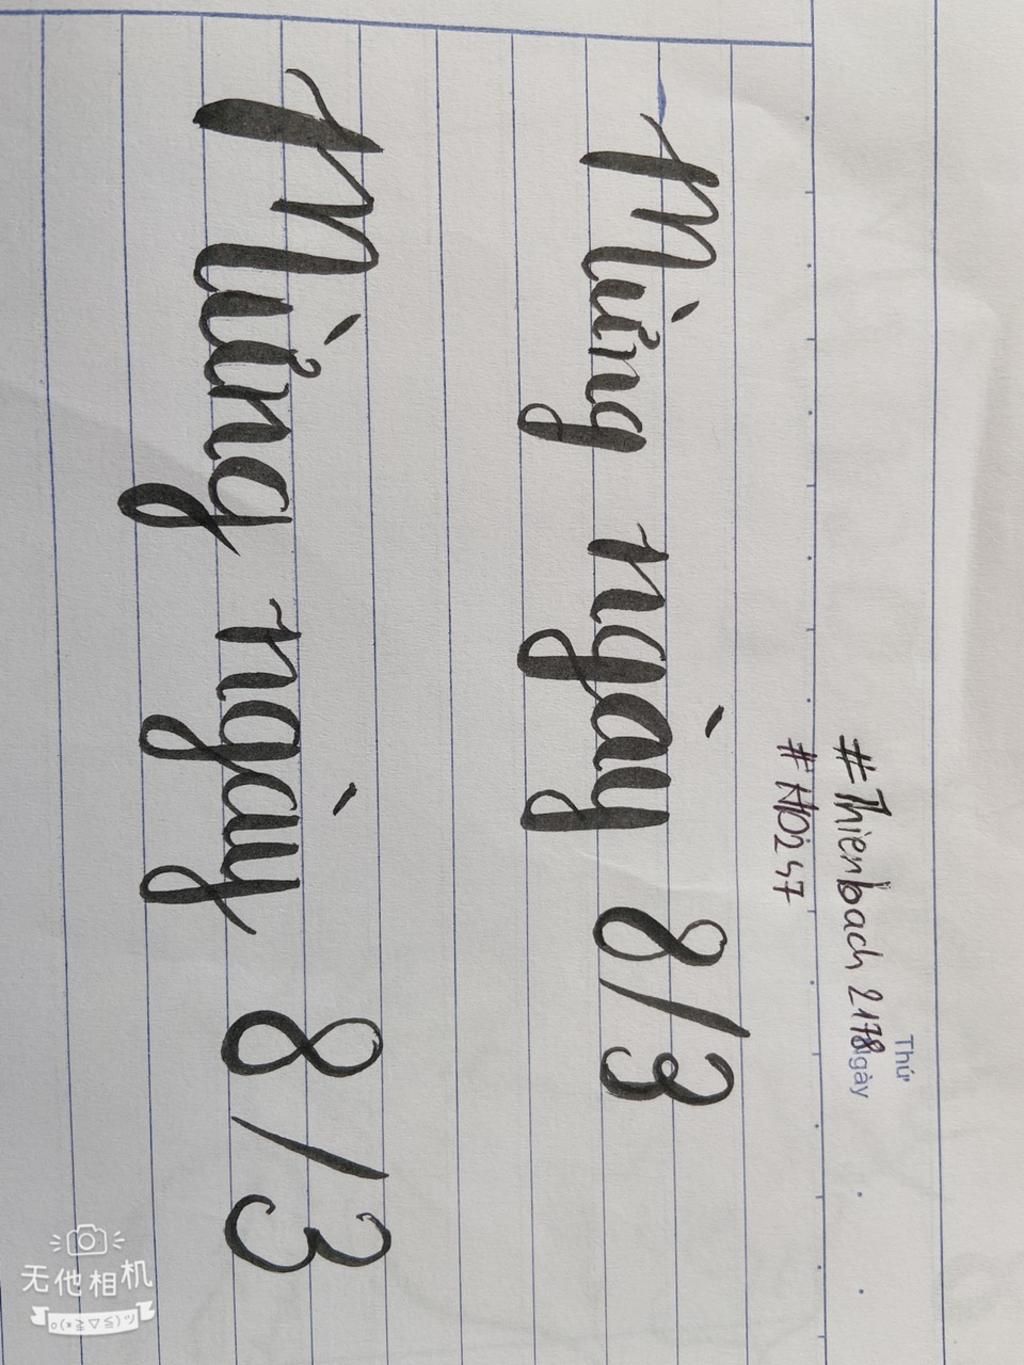 Thứ
Ngày
#Thienbach 2178
#ND247
Mừng ngày 8/3
Mừng ngày 8/3
无他相机